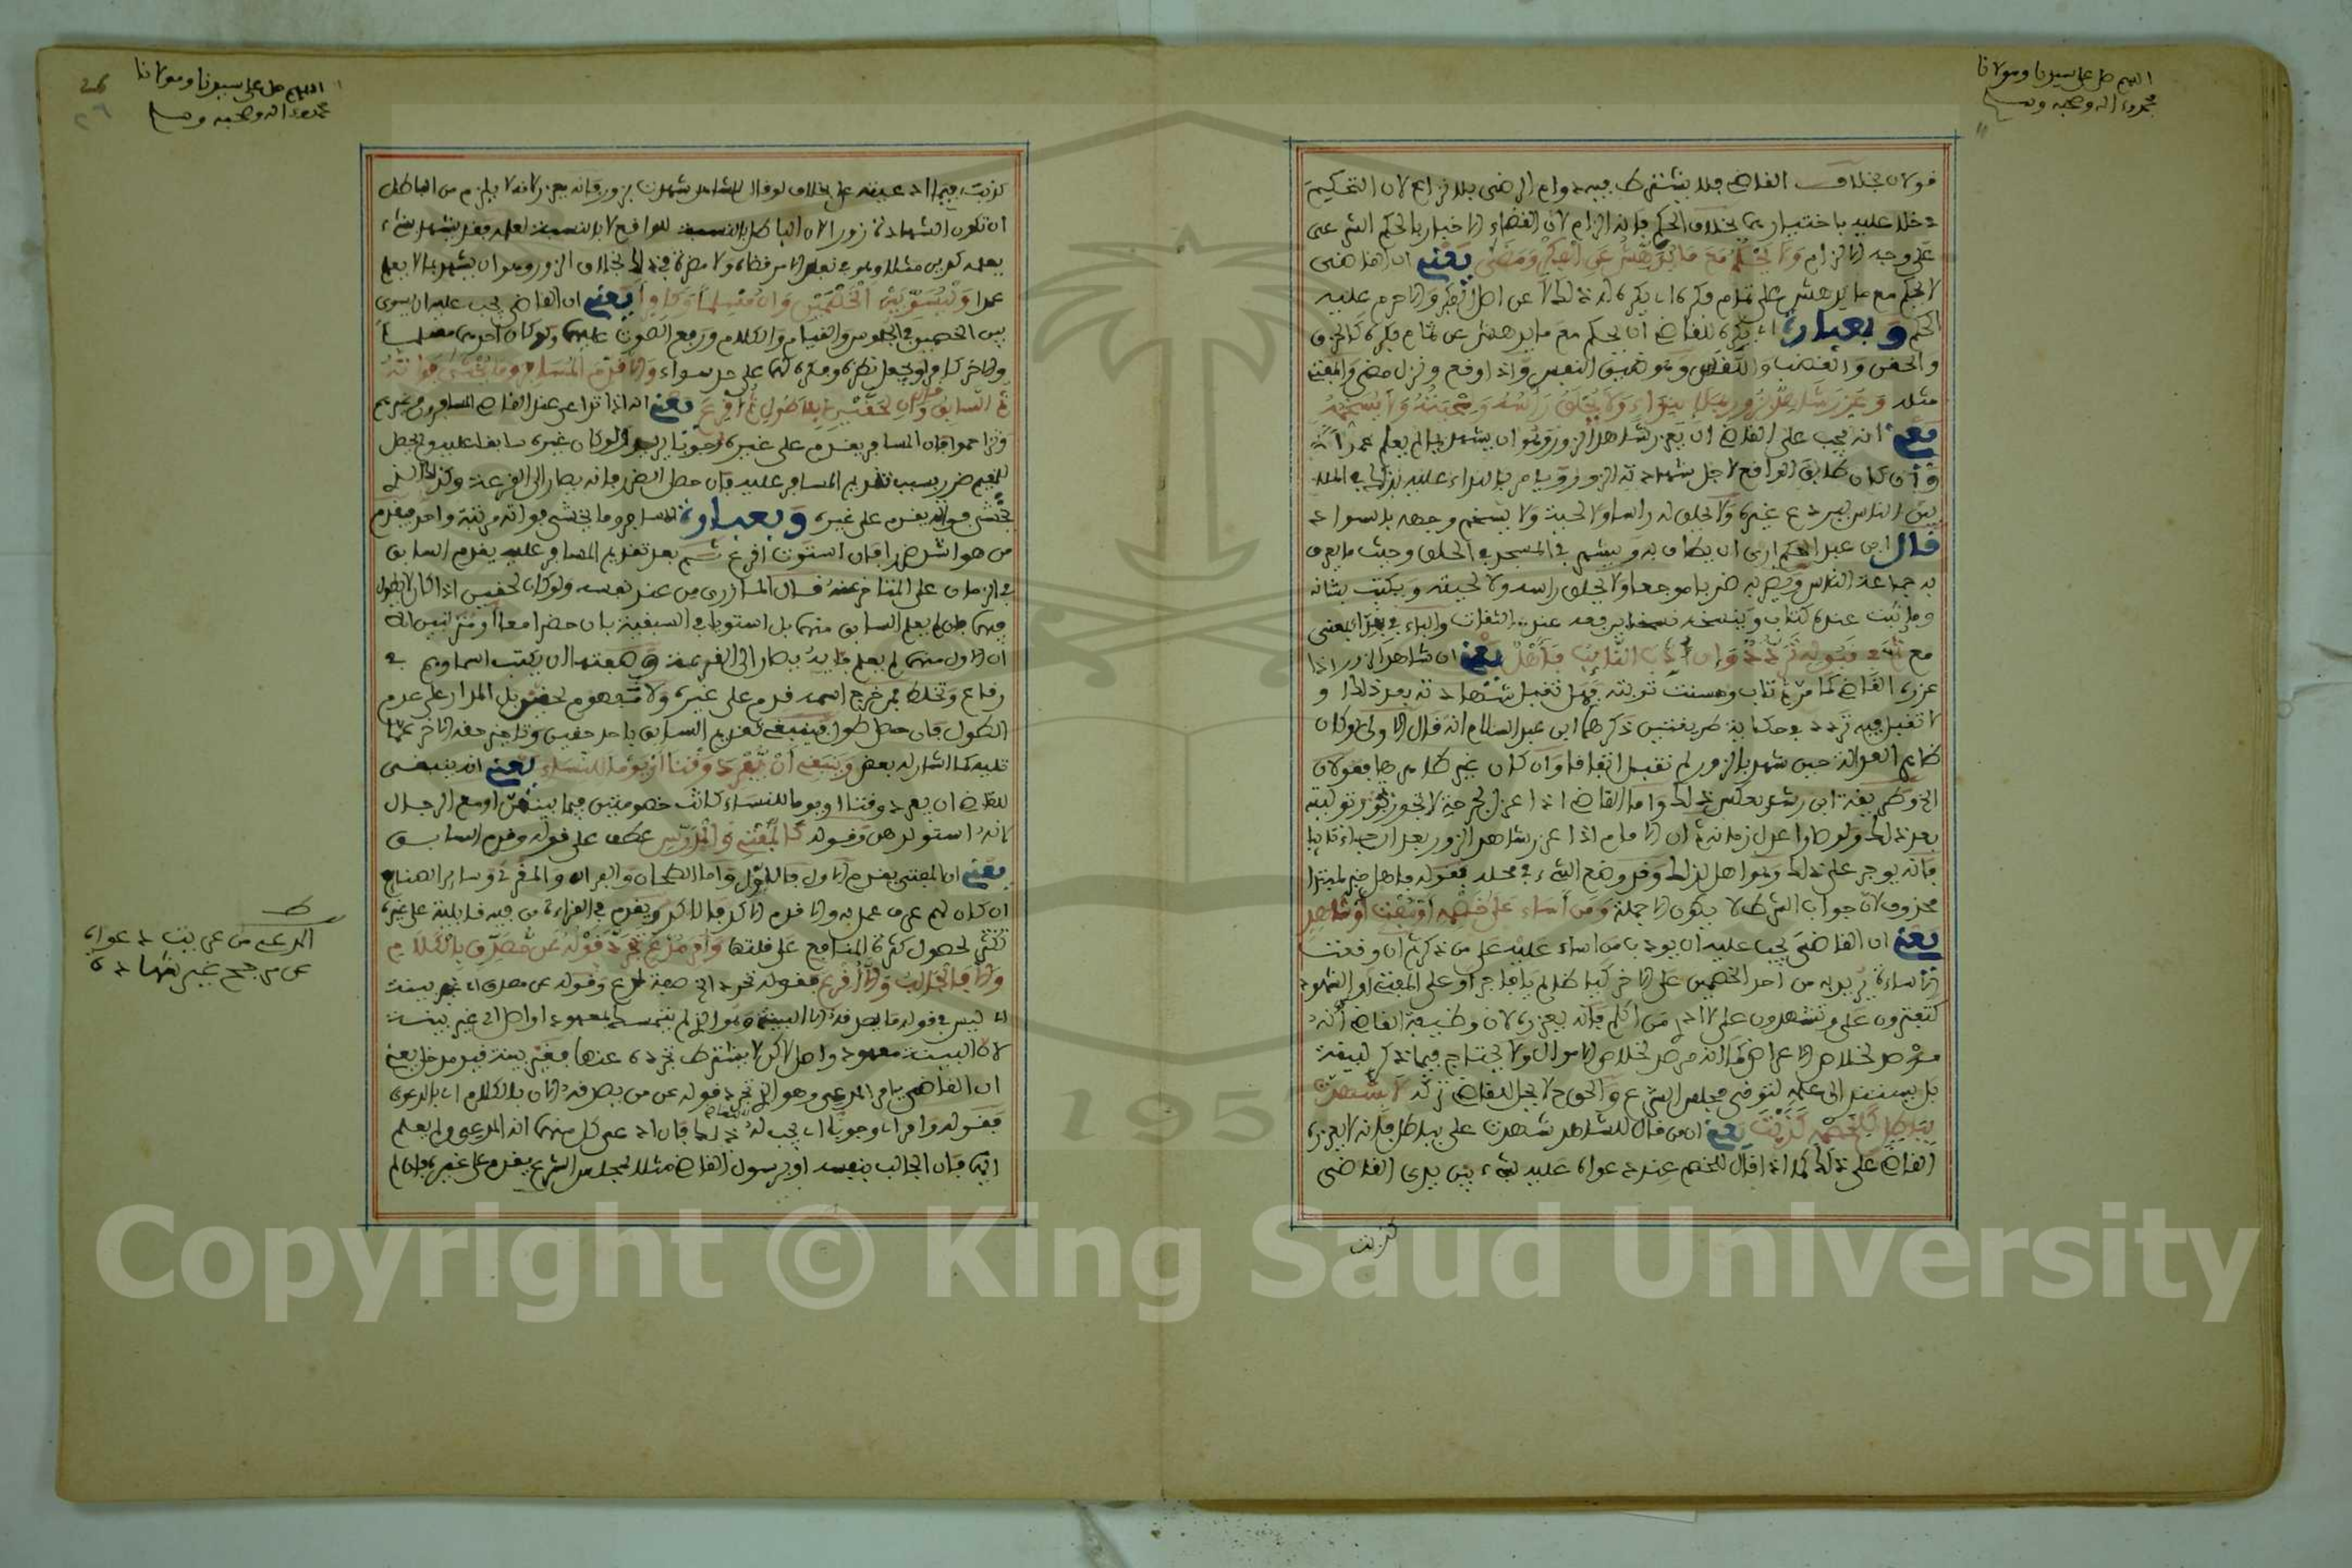 اللهم صل على سيدنا ومولانا
محمد وءاله وصحبه وسلم
قولان بخلاف القاضي فلا يشترط فيه دوام الرضى بلا نزاع لان التحكيم
دخلا عليه باختيارهما بخلاف الحكم فإنه الزام لأن القضاء الاخبار بالحكم الشرعى
على وجه الالزام ولا يحكم مع ما يدهش عن الفكر ومضى يعنى ان القاضى
لا يحكم مع ما يدهش على تمام فكره اى يكره له ذلك لا عن اصل الفكر والا حرم عليه
الحكم وبعبارة اى يكره للقاضي ان يحكم مع ما يدهش عن تمام فكره كالحزن
والحقن والغضب واللقس وهو ضيق النفس واذا وقع ونزل مضى والمفتى
مثله وعزر شاهد زور بملإ بنداء ولا يحلق رأسه ولحيته ولا يسخمه
يعنى انه يجب على القاضى ان يعزر شاهد الزور وهو ان يشهد بما لم يعلم عمدا
وان كان طابق الواقع لاجل شهادته الزور ويامر بالنداء عليه بذلك فى الملإ
بين الناس ليرتدع غيره ولا يحلق له راسا ولا لحية ولا يسخم وجهه بالسواد
قال ابن عبد الحكم ارى ان يطاف به ويشهر فى المسجد فى الحلق وحيث ما يعرف
به جماعة الناس ويضربه ضربا موجعا ولا يحلق راسه ولا لحيته ويكتب بشانه
وما ثبت عنده كتاب وينسخه نسخا يرفعه عند الثقات والباء فى بملإ بمعنى
مع ثم فى قبوله تردد وان أدب التائب فأهل يعنى ان شاهد الزور اذا
عزره القاضى كما مر ثم تاب وحسنت توبته فهل تقبل شهادته بعد ذلك او
لا تقبل فيه تردد فى حكاية طريقتين ذكرهما ابن عبد السلام انه قال الاولى لو كان
ظاهر العدالة حين شهد بالزور لم تقبل اتفاقا وان كان غير ظاهرها فقولان
الخ وطريقة ابن رشد بعكس ذلك واما القاضى اذا عزل لجرحة لا تجوز توليته
بعد ذلك ولو صار اعدل زمانه ثم ان الامام اذا عزر شاهد الزور بعد ان جاء تائبا
فانه يوجر على ذلك وهو اهل لذلك وقد وضع الشىء فى محله فقوله فاهل خبر لمبتدإ
محذوف لان جواب الشرط لا يكون الا جملة ومن أساء على خصمه أو مفت أو شاهد
يعنى ان القاضى يجب عليه ان يودب من اساء عليه على من ذكر ثم ان وقعت
الاساءة من احد الخصمين على الاخر كيا ظالم يا فاجر او على المفتى او الشهود
كتفترون على وتشهدون على لا ادرى من اكلم فانه يعزره لان وظيفة القاضى انه
مرصد لخلاص الاعراض كما انه مرصد لخلاص الاموال ولا يحتاج فيما ذكر لبينة
بل يستند الى علمه لتوقى مجلس الشرع والحق ح لا يحل للقاضى تركه لا بشهدت
بباطل كلخصمه كذبت يعنى ان من قال للشاهد شهدت على بباطل فانه لا يعزره
القاضى على ذلك كما اذا قال للخصم عند دعواه عليه بشىء بين يدى القاضى
كذبت
اللهم صل على سيدنا ومولانا
محمد وءاله وصحبه وسلم
26
٢٦
كذبت فيما ادعيته على بخلاف لو قال للشاهد شهدت بزور فانه يعزر لانه لا يلزم من الباطل
ان تكون الشهادة زورا لان الباطل بالنسبة للواقع لا بالنسبة لعلمه فقد يشهد بشىء
يعلمه كدين مثلا وهو فى نفس الامر قضاه ولا مضرة فى ذلك بخلاف الزور وهو ان يشهد بما لا يعلم
عمدا وليسو بين الخصمين وان مسلما وكافرا يعنى ان القاضى يجب عليه ان يسوى
بين الخصمين فى الجلوس والقيام والكلام ورفع الصوت عليهما ولو كان احدهما مسلما
والاخر كافرا ويجعل نظره وفكره لهما على حد سواء وقدم المسافر وما يخشى فواته
ثم السابق قال وان بحقين بلا طول ثم اقرع يعنى انه اذا تداعى عند القاضى المسافرون وغيرهم
وتزاحموا فان المسافر يقدم على غيره وجوبا ولو كان غيره سابقا عليه ويحصل
للمقيم ضرر بسبب تقديم المسافر عليه فان حصل الضرر فانه يصار الى القرعة وكذلك الذى
يخشى فواته يقدم على غيره وبعبارة المسافر وما يخشى فواته مرتبة واحد فيقدم
من هو اشد ضررا فان استوت اقرع ثم بعد تقديم المسافر عليه يقدم السابق
فى الزمان على المتاخر عنه قال المازرى من عند نفسه ولو كان لحقين اذا كان لا طول
فيهما فان لم يعلم السابق منهما بل استويا فى السبقية بان حضرا معا او مترتبين الا
ان الاول منهما لم يعلم فانه يصار الى القرعة وصفتها ان يكتب اسماوهم فى
رقاع وتخلط فمن خرج اسمه قدم على غيره ولا مفهوم لحقين بل المدار على عدم
الطول فان حصل طول فينبغى تقديم السابق باحد حقين وتاخير حقه الاخر عما
تليه كما اشار له بعض وينبغى أن يفرد وقتا أو يوما للنساء يعنى انه ينبغى
للقاضى ان يفرد وقتا او يوما للنساء كانت خصومتهن فيما بينهن او مع الرجال
لانه استر لهن وقوله كالمفتى والمدرس عطف على قوله وقدم السابق
يعنى ان المفتى يقدم الاول فالاول واما الطحان والفران والمقرئ وساير الصنايع
ان كان لهم عرف عمل به والا قدم الاكد فالاكد ويقدم فى القراءة من فيه قابلية على غيره
لكثير لحصول كثرة المنافع على قلتها وأمر مدع تجرد قوله عن مصدق بالكلام
والا فالجالب والا أقرع فقوله تجرد الخ صفة لمدع وقوله عن مصدق اى غير بينة
اى ليس فى قوله ما يصدقه الا البينة وهو الذى لم يتمسك بمعهود او اصل اى غير بينة
لان البينة معهود واصل لاكن لا يشترط تجرده عنها فغير بينة قيد مدخل يعنى
ان القاضى يامر المدعى وهو الذى تجرد قوله عن من يصدقه الان بالكلام اى بالدعوى
فقوله وامر اى وجوبا اى يجب له ذلك فان ادعى كل منهما انه المدعى ولم يعلم
ايهما فان الجالب بنفسه او برسول القاضى مثلا لمجلس الشرع يقدم على غيره فان لم
ط
المدعى من عريت دعواه
عن مرجح غير شهادة
Copyright © King Saud University
1957